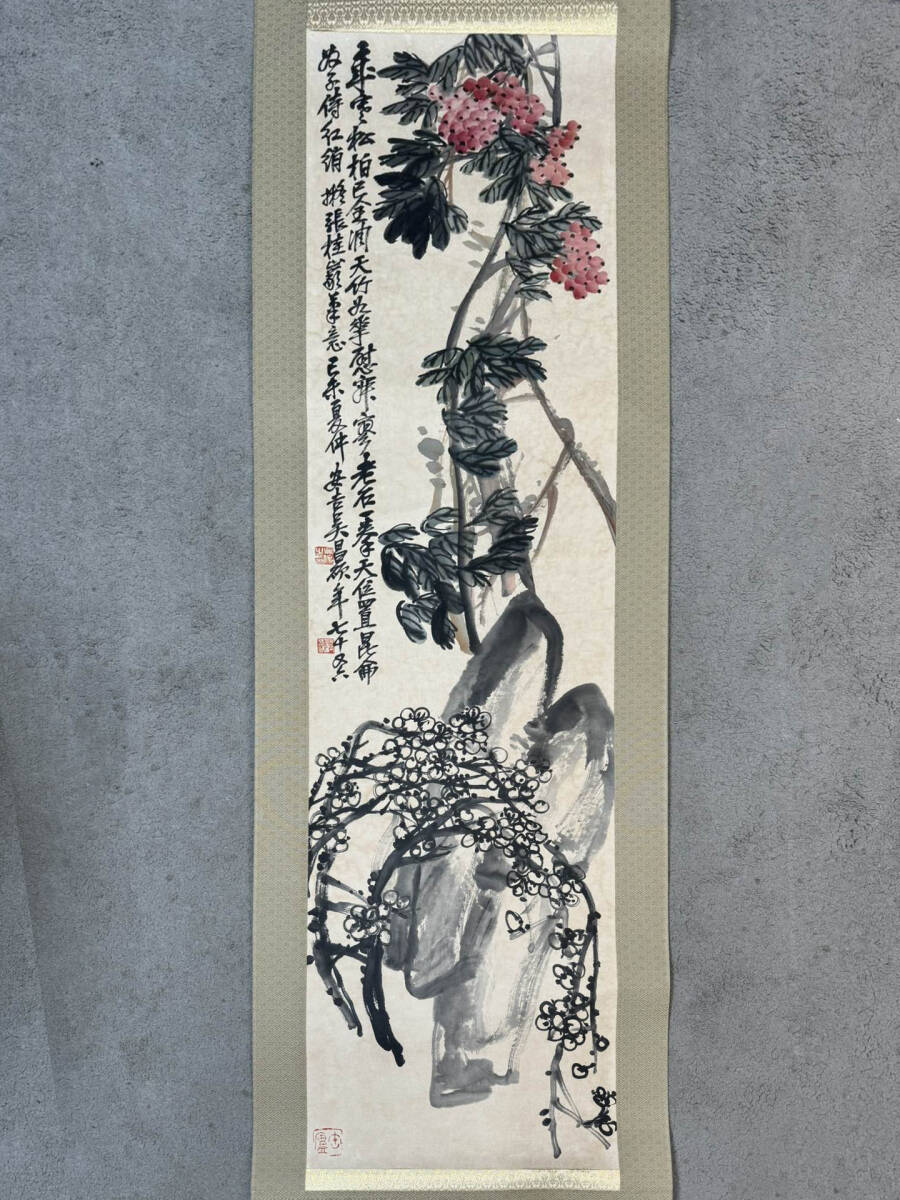 歲寒松柏已全凋天竹華慰寂寥老石一拳天位置昆侖
奴子侍紅綃 擬張桂巖筆意 己未夏仲 安吉吳昌碩年七十又六